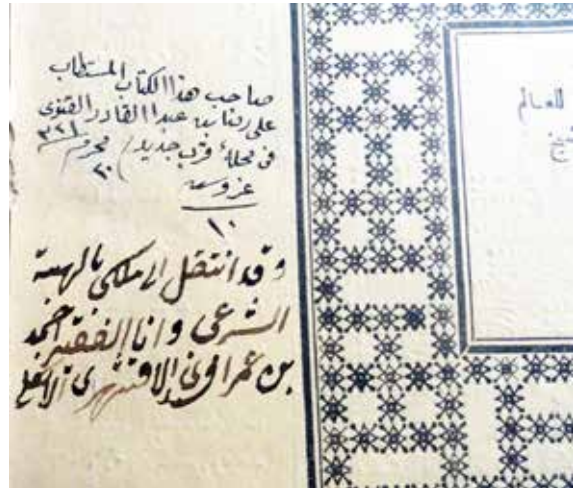 صاحب هذا الكتاب المستطاب
على رضا بن عبد القادر القنوى
فى محلة جديد محرم ٣٢١
٢٠
غروسه
١٠
وقد انتقل الى ملكى بالهبة
الشرعى وانا الفقير احمد
بن عمر الاقشهرى
للعالم